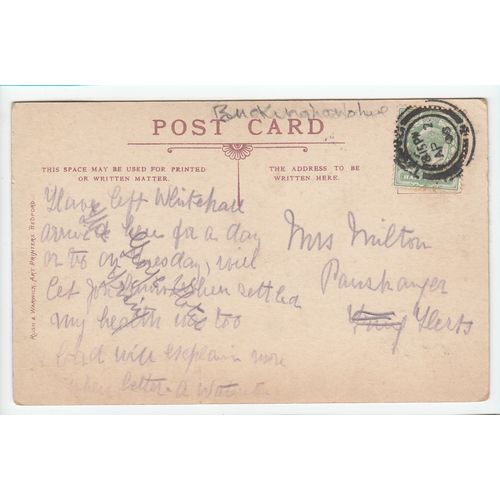 Buckinghamshire
POST CARD
THIS SPACE MAY BE USED FOR PRINTED
OR WRITTEN MATTER.
THE ADDRESS TO BE
WRITTEN HERE.
RUSH & WARWICK, ART PRINTERS, BEDFORD.
I have left Whitehall
arrived here for a day
or two on day, will
let you when settled
my health too
bad will explain more
when letter. A
Mrs Milton
Panshanger
Herts